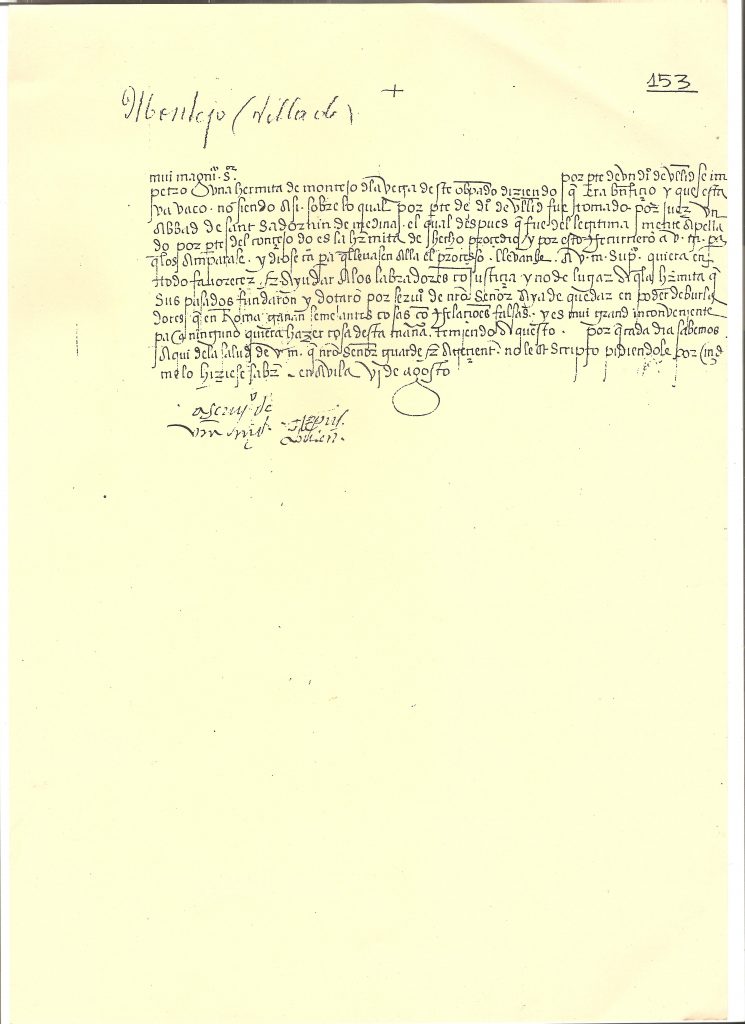 153
+
Montejo (villa de)
mui magco. Sor. por pte de vn do. de vllid se im
petro vna hermita de montejo dla vega deste obpado diziendo q̃ Era bnficio y que esta
va vaco. no siendo asi. sobre lo qual por pte de do. de vllid fue tomado por juez vn
Abbad de sant sadornin de medina. el qual despues q̃ fue del legitima mente Apella
do por pte del concejo do es la hrmita de hecho procedio y por esto Recurriero a v. m.
q̃ los Amparase. y diose pa q̃ lleuasen Alla el proceso. lleuanle. A v. m. supco. quiera en
todo fauorecer Ayudar Alos labradores co justicia y no de lugar A q̃ la hrmita q̃
sus pasados fundaron y dotaro por seruio de nro Señor Aya de quedar en poder de burla
dores q̃ en Roma ganan semejantes cosas co Relacioes falsas. y es mui grand inconveniente
pa q̃ ninguno quiera hazer cosa desta mana. temiendo Aquesto. por q̃ cada dia sabemos
Aqui dela salud de v. m. q̃ nro Señor guarde no le he Scripto pidiendole por
me lo hiziese saber. en Avila vj de agosto
a seruio de
v. m.